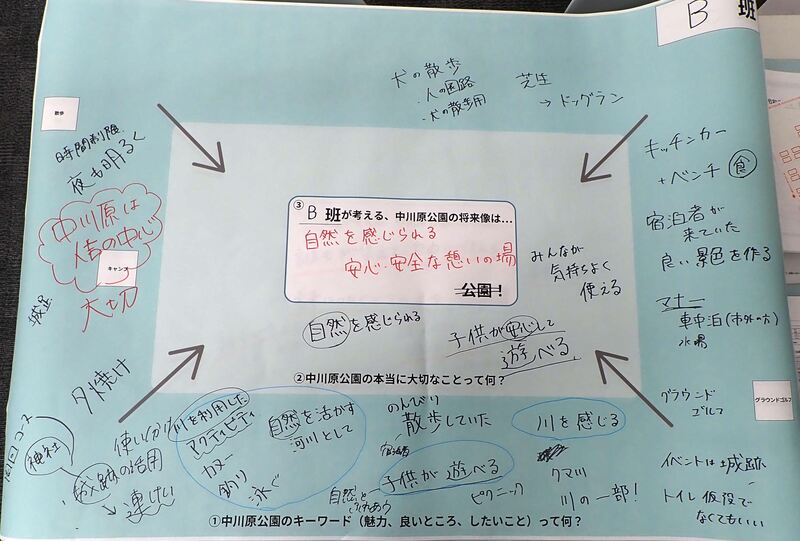 B 班
犬の散歩
・人の回路
・犬の散歩用
芝生
→ドッグラン
散歩
時間制限
夜も明るく
中川原は
人吉の中心
キャンプ
大切
城跡
夕焼け
キッチンカー
+ベンチ 食
宿泊者が
来ていた
良い景色を作る
マナー
車中泊(市外の方)
水場
グラウンド
ゴルフ
グラウンドゴルフ
イベントは城跡
トイレ仮設で
なくてもいい
③
B 班が考える、中川原公園の将来像は…
自然を感じられる
安心・安全な憩いの場
公園!
みんなが
気持ちよく
使える
自然を感じられる
子供が安心して
遊べる
②中川原公園の本当に大切なことって何?
コース
神社
使いながら
城跡の活用
→連けい
川を利用した
アクティビティ
カヌー
釣り
泳ぐ
自然を活かす
河川として
のんびり
散歩していた
宿泊者
子供が遊べる
自然と
ふれあう
ピクニック
川を感じる
クマ川
川の一部!
①中川原公園のキーワード(魅力、良いところ、したいこと)って何?